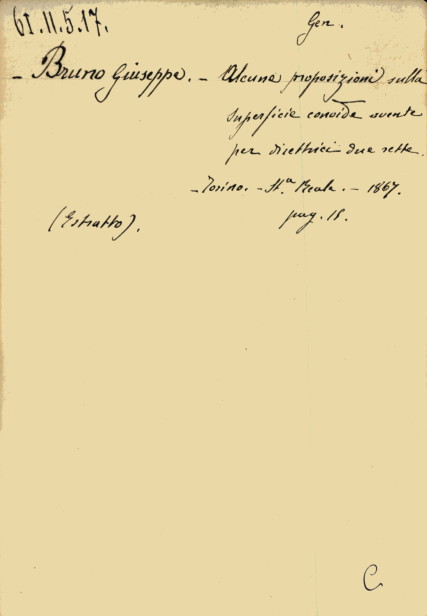 61.II.5.17.
Gen.
- Bruno Giuseppe. - Alcune proposizioni sulla
superficie conoide avente
per direttrici due rette.
- Torino. - St.a Reale. - 1867.
(Estratto).
pag. 18.
C